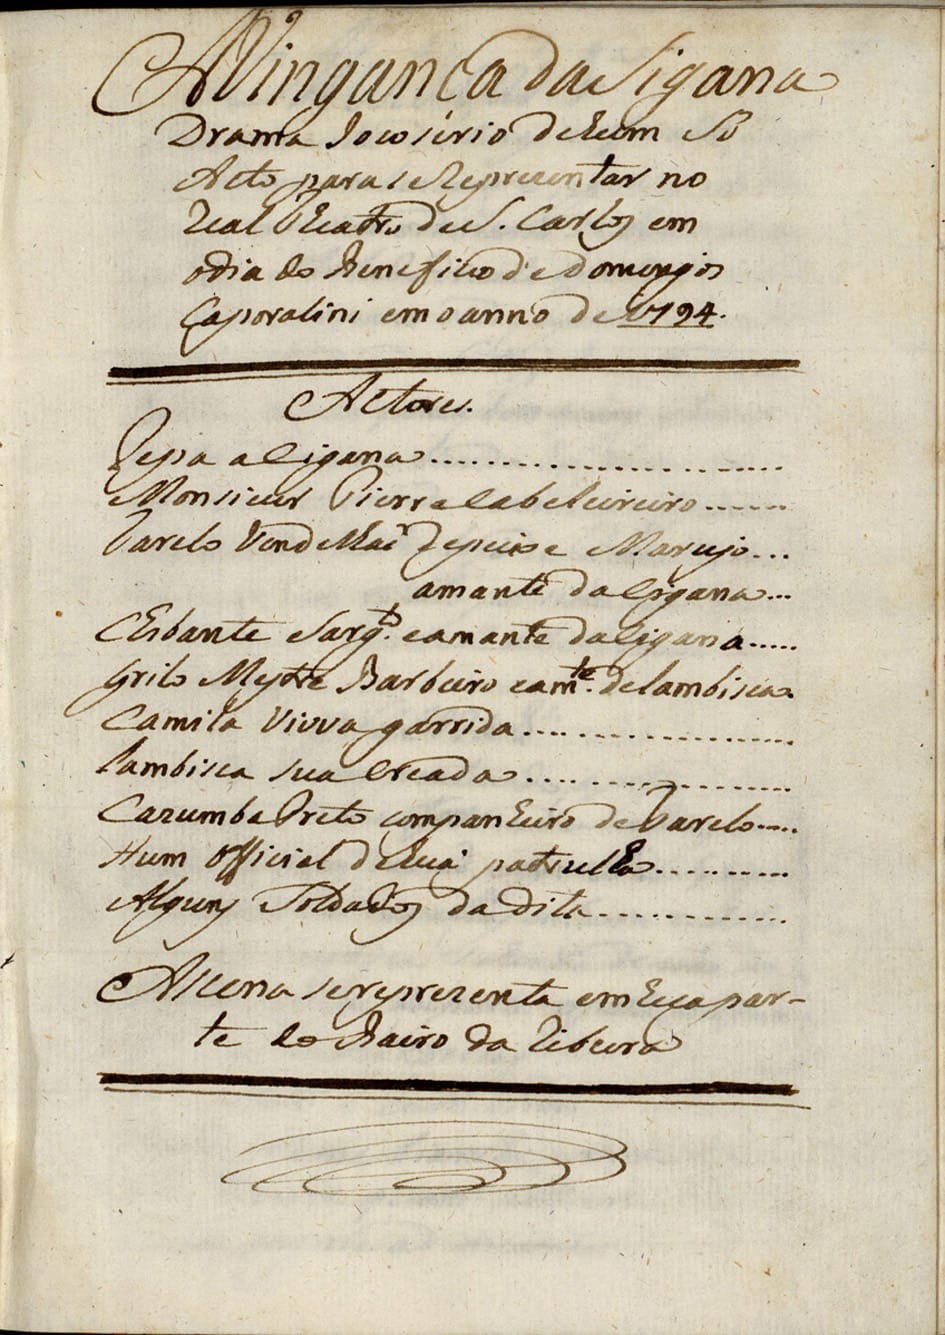 A Vingança da Sigana
Drama Jocosério de hum Só
Acto para se Reprezentar no
Real Theatro de S. Carlos em
o dia do Beneficio de Domingos
Caporalini em o anno de 1794.
Actores.
Pepa a Cigana
Monsieur Pierre Cabeleireiro
Tarelo Marujo
amante da Cigana
Chibante Sargto. e amante da Cigana
Grilo Mestre Barbeiro e amte. de Lambisca
Camila Viuva garrida
Lambisca sua Creada
Cazumba Preto companheiro de Tarelo
Hum Official de hua patrulha
Alguns Soldados da dita
A Scena se reprezenta em hua par-
te do Bairo da Ribeira